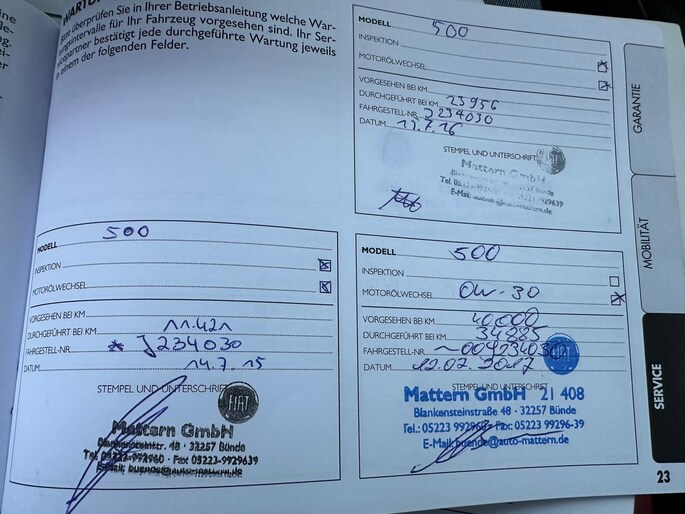 WARTU
Bitte überprüfen Sie in Ihrer Betriebsanleitung welche War-
tungsintervalle für Ihr Fahrzeug vorgesehen sind. Ihr Ser-
vicepartner bestätigt jede durchgeführte Wartung jeweils
in einem der folgenden Felder.
MODELL 500
INSPEKTION
MOTORÖLWECHSEL
VORGESEHEN BEI KM
DURCHGEFÜHRT BEI KM 23956
FAHRGESTELL-NR. J234030
DATUM
STEMPEL UND UNTERSCHRIFT
FIAT
Mattern GmbH
Bünde
05223-9929639
MODELL 500
INSPEKTION
MOTORÖLWECHSEL
VORGESEHEN BEI KM
DURCHGEFÜHRT BEI KM 11.421
FAHRGESTELL-NR. * J234030
DATUM 14.7.15
STEMPEL UND UNTERSCHRIFT
FIAT
Mattern GmbH
48 · 32257 Bünde
Fax 05223-9929639
E-Mail: buende@auto-mattern.de
MODELL 500
INSPEKTION
MOTORÖLWECHSEL 0W-30
VORGESEHEN BEI KM 40.000
DURCHGEFÜHRT BEI KM 34885
FAHRGESTELL-NR.
DATUM 12.02.2017
STEMPEL UND UNTERSCHRIFT
FIAT
Mattern GmbH 21 408
Blankensteinstraße 48 · 32257 Bünde
Fax: 05223 99296-39
E-Mail: buende@auto-mattern.de
GARANTIE
MOBILITÄT
SERVICE
23